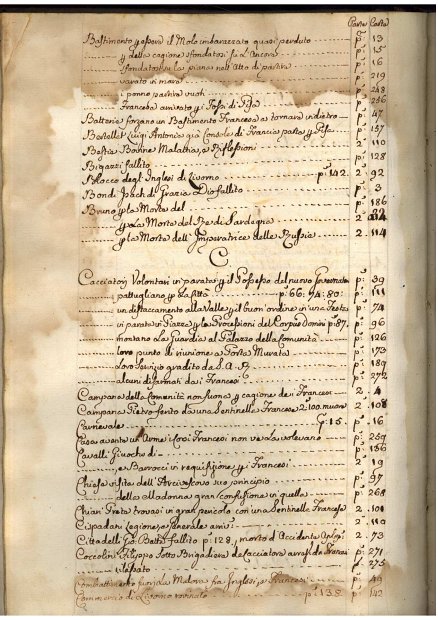 Parte Carte
Bastimento p essere il Molo imbarazzato quasi perduto p: 13
p detta cagione sfondatosi su l'Ancora p: 15
sfondatosi la piana nell'Atto di partire p: 16
varato in mare p: 219
i ponno partire vuoti p: 248
Francese arrivato p i Fossi di Pisa p: 256
Batterie forzano un Bastimento Francese a tornare indietro p: 47
Bertellet Luigi Antonio già Console di Francia passa p Pisa p: 157
Bestie Bovine Malattia, e Riflessioni 2: 110
Bigazzi fallito p: 128
Blocco degl' Inglesi di Livorno p: 142. 2: 92
Bond Isach di Grazia Dio fallito p: 3
Bruno p la Morte del p: 186
p la Morte del Re di Sardegna 2: 32
p la Morte dell' Imperatrice delle Russie 2: 114
C
Cacciatori Volontari in parata p il Possesso del nuovo Governatore p: 39
pattugliano p la Città p: 66: 74: 80: p: 111
un distaccamento alla Valle p il buon ordine in una Festa p: 74
in parata in Piazza p la Processione del Corpus Domini p: 87. p: 96
montano la Guardia al Palazzo della Comunità p: 126
loro punto di riunione a Porta Murata p: 173
Loro Servizio gradito da S. A. R. p: 189
alcuni disarmati dai Francesi p: 272
Campana della Comunità non suona p cagione de i Francesi 2: 4
Campana Pietro ferito da una Sentinella Francese 2: 100. muore 2: 108
Carnevale p: 15. p: 16
Casa avante un Arme i Corsi Francesi non ve la volevano p: 269
Cavalli Giuoche di p: 186
e Barrocci in requisizione p i Francesi 2: 19
Chiesa visita dell' Arcivescovo suo principio p: 97
della alladonna gran confusione in quella p: 268
Chiari Greta trovasi in gran pericolo con una Sentinella Francese 2: 101
Cispadani Legione, e Generale arrivi 2: 110
Cittadelli Gio Batta fallito p: 128, morto d'Accidente Aplop. 2: 73
Coccolini Filippo Sotto Brigadiere de Cacciatore arrestato da Francesi p: 271
rilasciato p: 275
Combattimento fuori da Malora fra Inglesi, e Francesi p: 49
Commercio di Livorno rovinato p: 138. p: 142